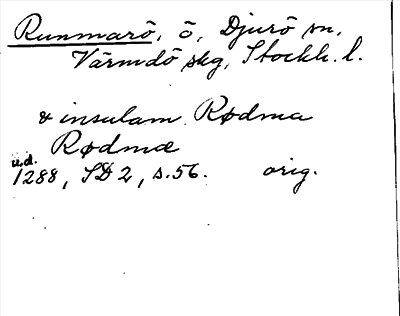 Runmarö, ö, Djurö sn,
Värmdö skg, Stockh. l.
& insulam Rødma
Rødmæ
u.d.
1288, SD 2, s. 56. orig.